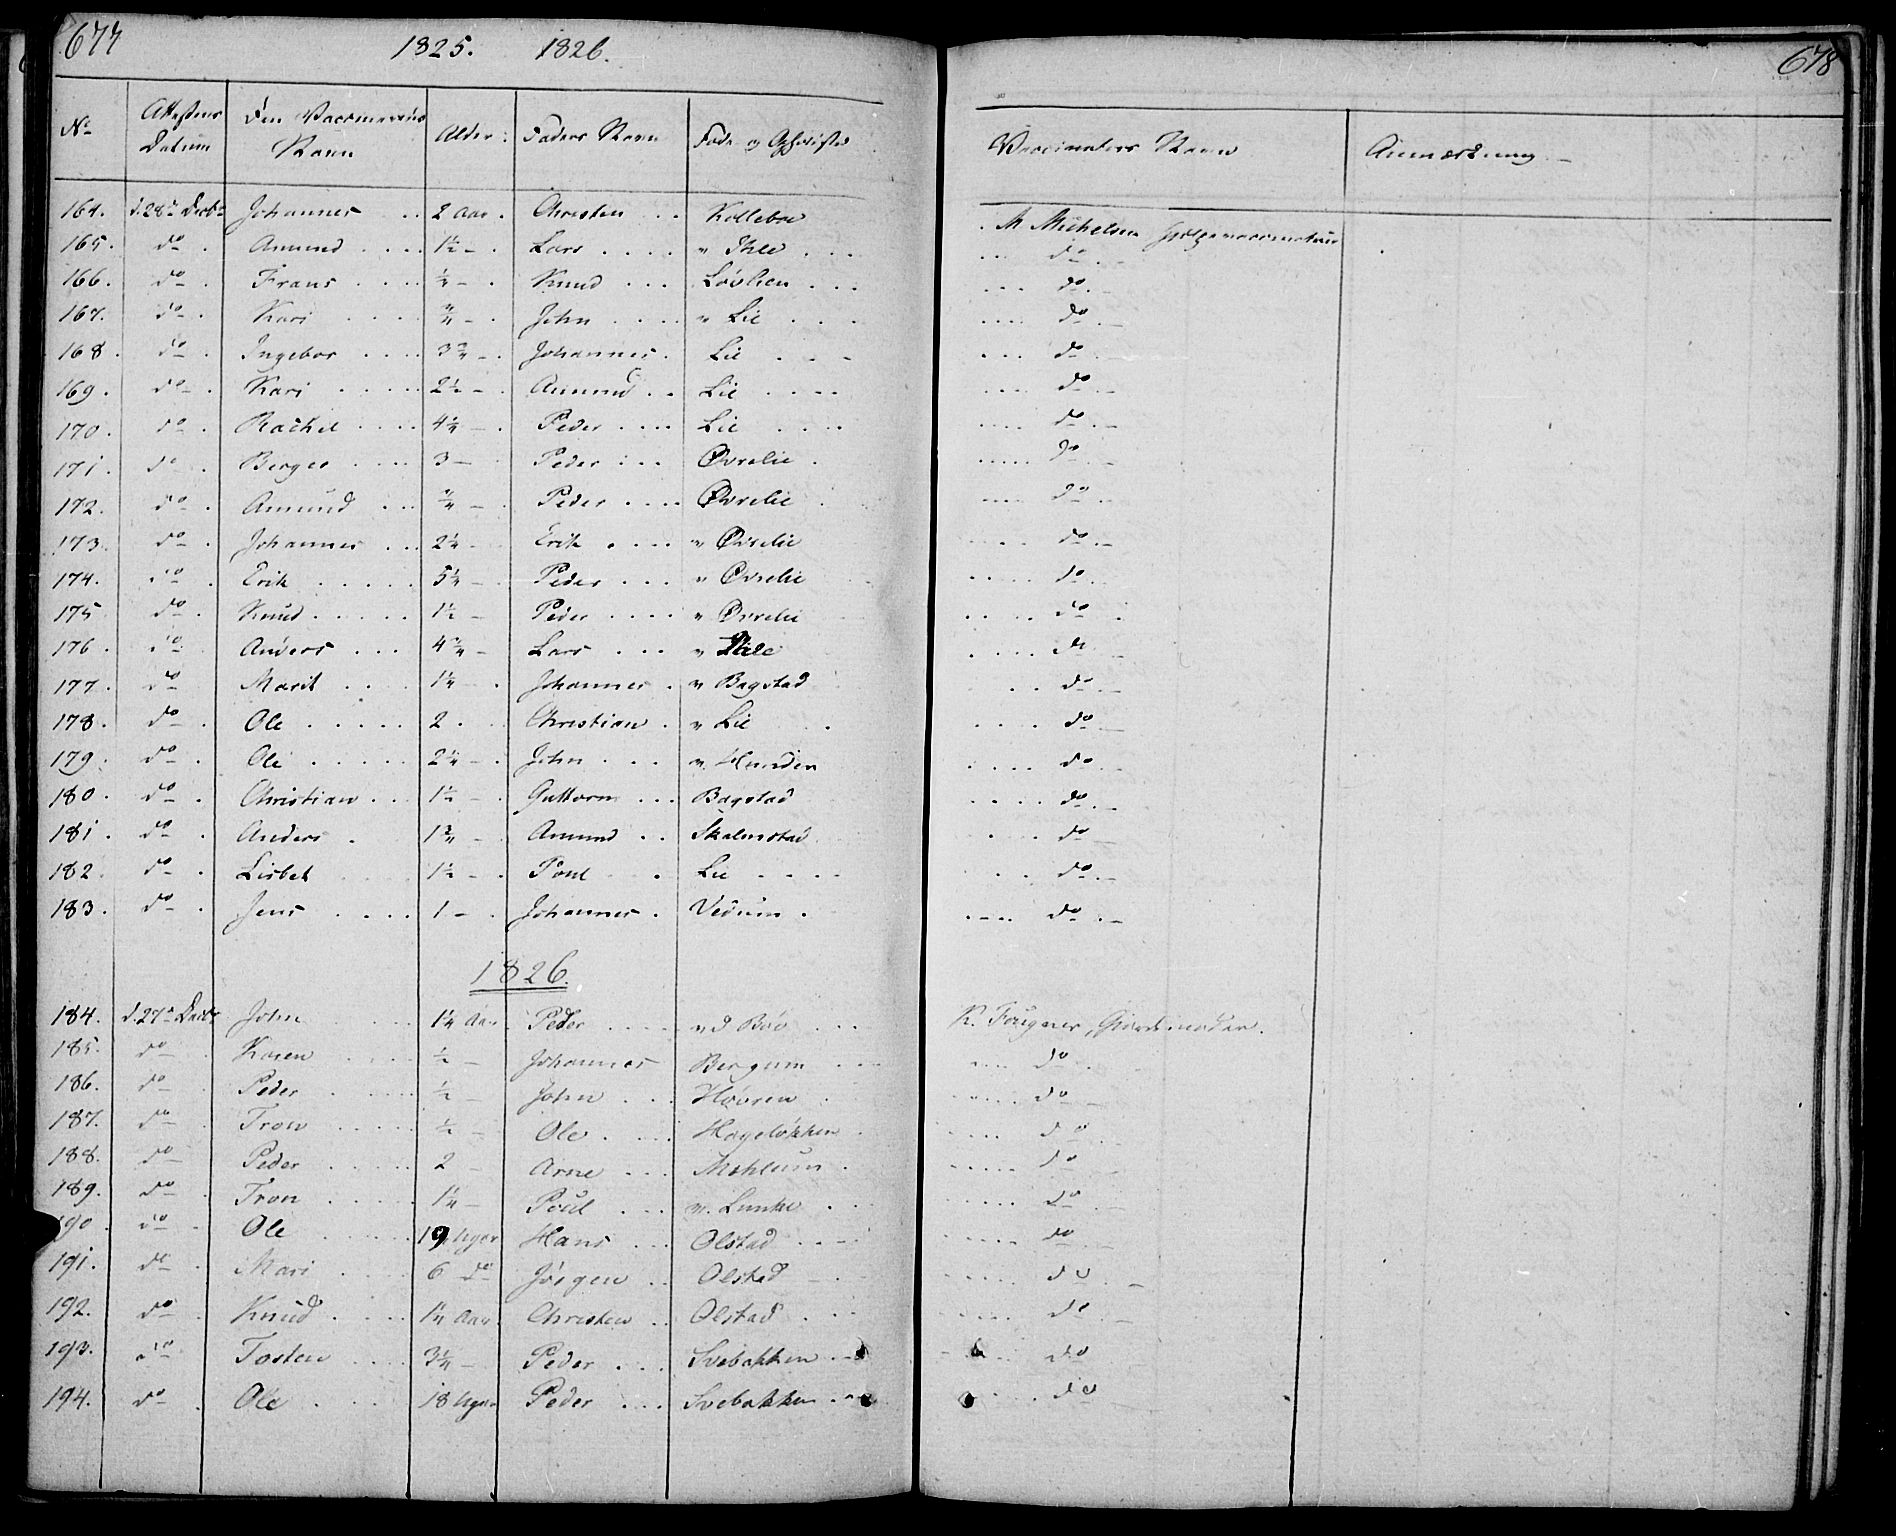 677 1825. 1826. 678
No Attestens Datum Den Vaccineredes Navn Alder: Faders Navn Føde og Opholdsted Vaccinators Navn Anmærkning
164. d. 28de Decbr Johannes .. 2 Aar. Christen .. Kolleboe M Michelsen Hjelpevaccinateur
165. do. Amund .... 1½ -. Lars .... " Ihle ... do
166. do. Frans .... ½ -. Knud ... Løvlien ... do
167. do. Kari .... ¾ -. John .... " Lie ... do
168. do. Ingebor .... 3¾ -. Johannes. Lie ... do
169. do. Kari .... 2½ -. Amund .. Lie .... do
170. do. Rachel .... 4¼ -. Peder .... Lie .... do
171. do. Berger .... 3 - Peder ... Øvrelie . do
172. do. Amund ... ¾ -. Peder .... Øvrelie . do
173. do. Johannes ... 2¼ - Erik .... " Øvrelie do
174. do. Erik ..... 5¼ - Peder ... " Øvrelie do
175 do. Knud ..... 1½ - Peder .... " Øvrelie do
176. do. Anders ... 4¾ - Lars ... " Ihle do
177. do. Marit ... 1¼ -. Johannes . " Bagstad do
178. do. Ole ..... 2. Christian . " Lie . do
179. do. Ole ..... 2¼ -. John ... " Hunden do
180. do. Christian ... 1½ -. Guttorm ... Bagstad do
181. do. Anders . 1¾ - Amund .. Skalmstad do
182. do. Lisbet 1½ -. Poul .. Lie .... do
183. do. Jens .... 1 -. Johannes . Vedum . do
1826.
184. d. 27de Decbr John 1¼ Aar. Peder .... " d Bøe ... K. Fougner, Giordemoder.
185. do. Karen .... ½ - Johannes Bergum ... do
186. do. Peder .... ½ - John ... Høvren . do
187. do. Tron ..... ½ - Ole .... Hageløkken . do
188. do. Peder ..... 2 - Arne ... Mehlum . do
189. do. Tron .... 1¼ - Poul ... " Lunke ... do
190. do. Ole ..... 19 Uger Hans ... Olstad .... do
191. do. Mari .... 6 do Jørgen .. Olstad - . do
192. do. Knud .... 1¼ Aar. Christen .. Olstad ... do
193. do. Tosten ... 3¼ - Peder ... Svebakken ... do
194. do. Ole .... 18 Uger Peder ... Svebakken ... do